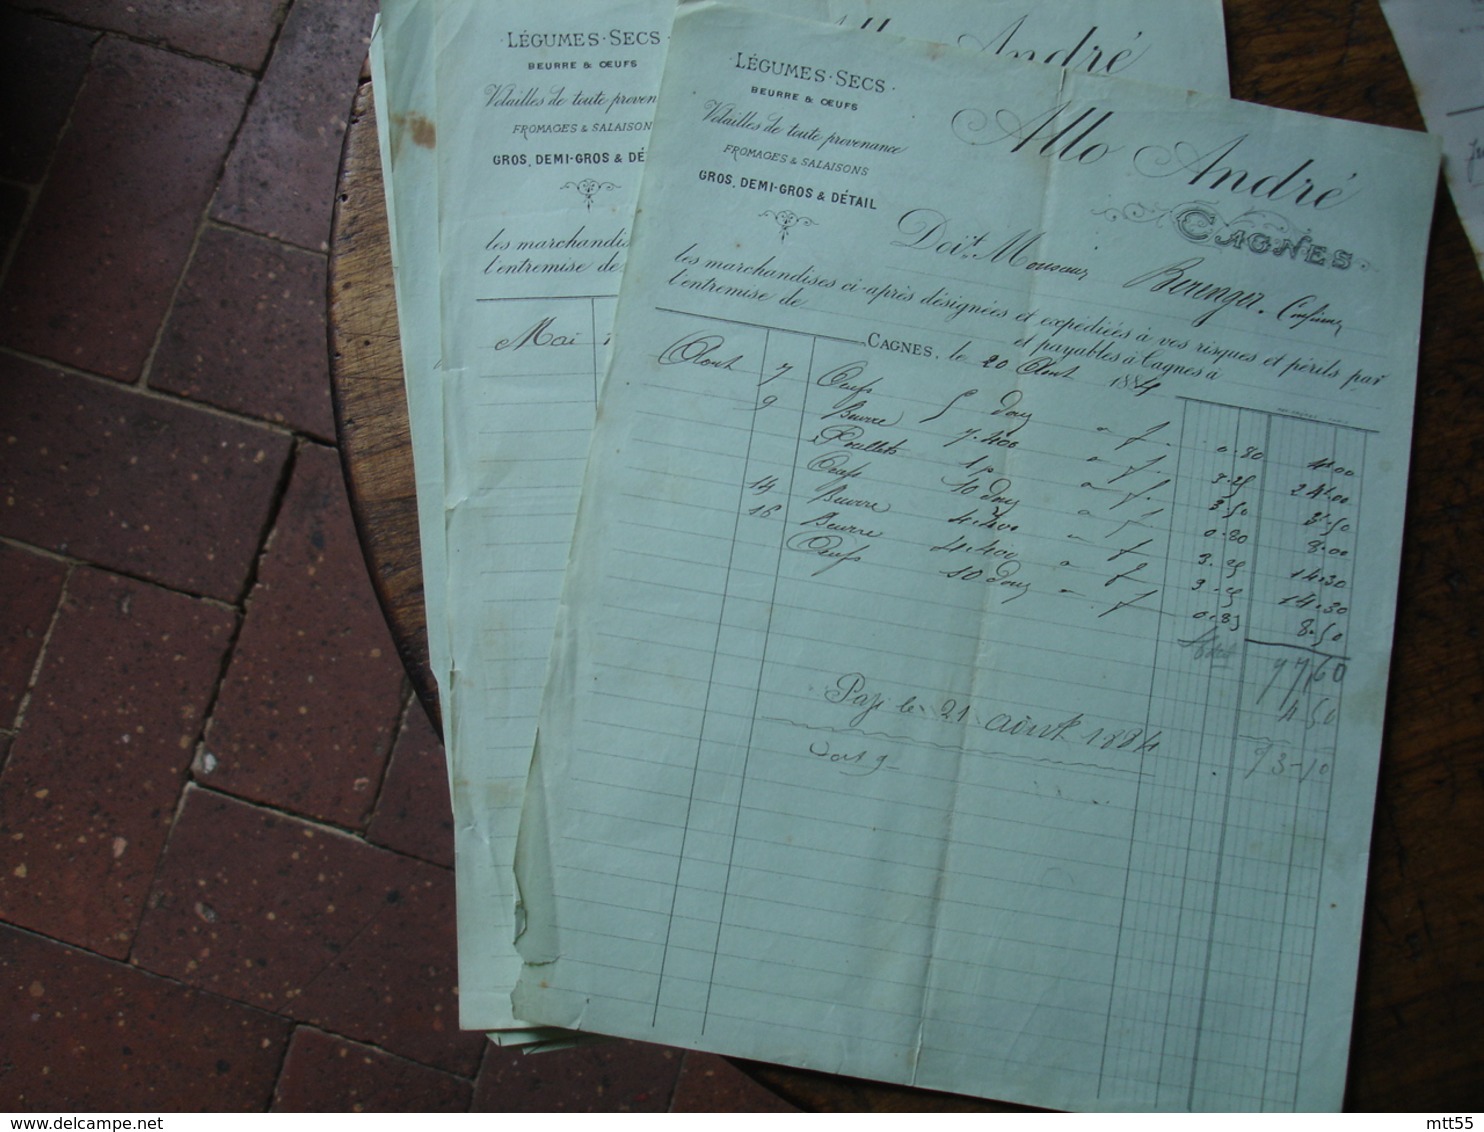 LÉGUMES·SECS
BEURRE & ŒUFS
Volailles de toute proven
FROMAGES & SALAISON
GROS, DEMI-GROS & DÉ
les marchandis
l'entremise de
Mai
Allo André
LÉGUMES·SECS
BEURRE & ŒUFS
Volailles de toute provenance
FROMAGES & SALAISONS
GROS, DEMI-GROS & DÉTAIL
Allo André
CAGNES
Doit Monsieur Berenger.
les marchandises ci-après désignées et expédiées à vos risques et périls par
l'entremise de et payables à Cagnes à
CAGNES, le 20 Aout 1884
Aout 7 Oeufs 5 douz à f. 0.80 4.00
9 Beurre 7.400 à f. 3.25 24.00
Poullets 1p à f. 3.50 3.50
Oeufs 10 douz à f. 0.80 8.00
14 Beurre 4.400 à f 3.25 14.30
16 Beurre 4.400 à f 3.25 14.30
Oeufs 10 douz à f 0.85 8.50
77,60
4 50
73-10
Payé le 21 août 1884
mtt55